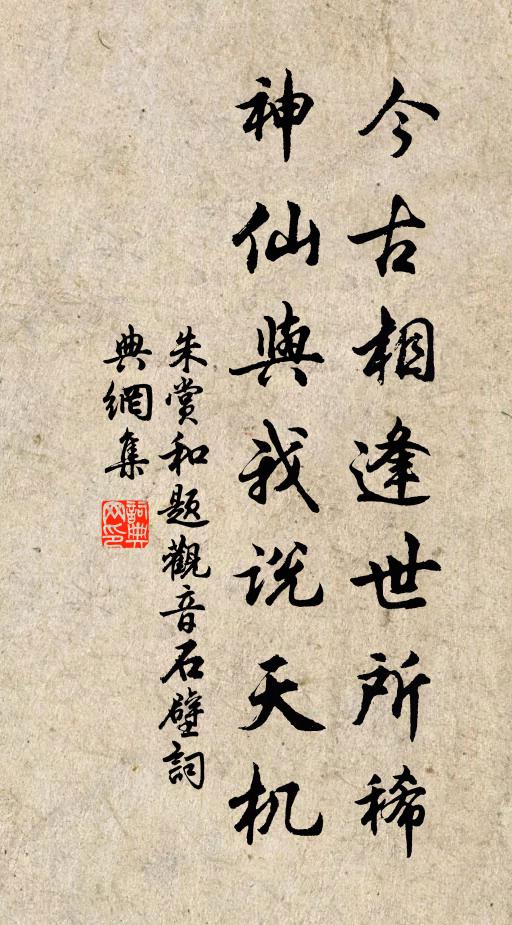 今古相逢世所稀
神仙與我説天机
朱赏和题觀音石壁詞
典網集
詞典网印